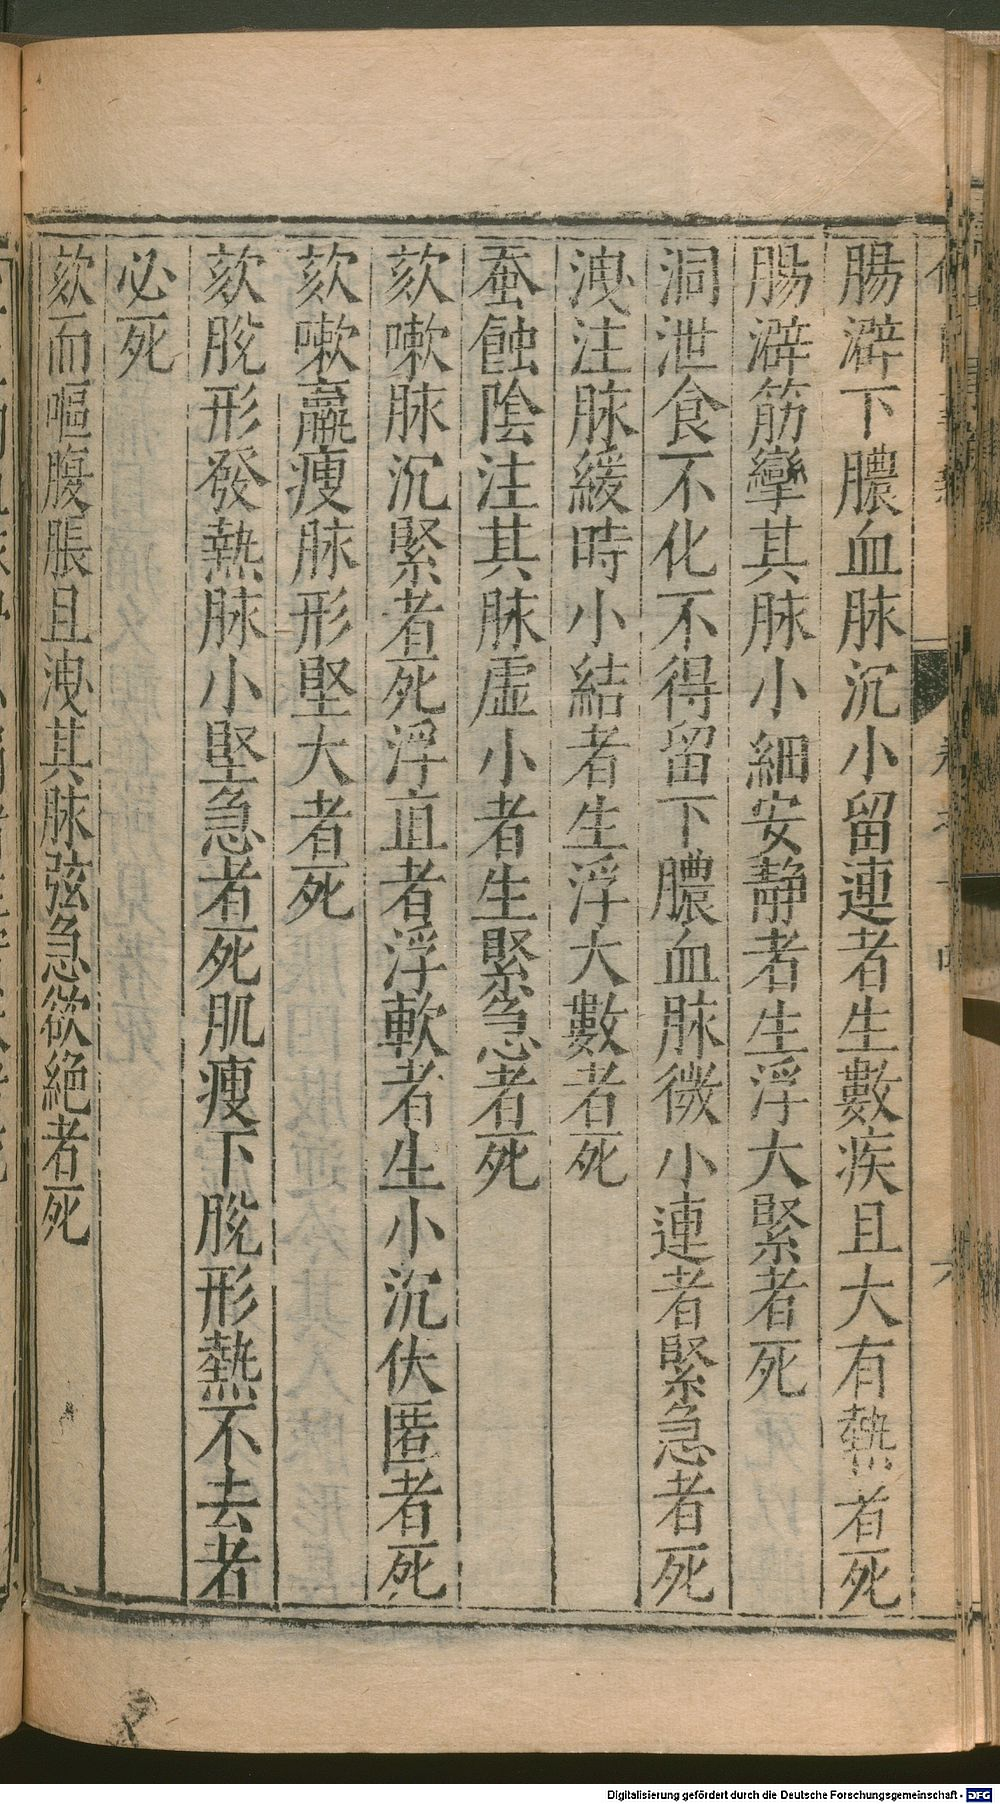 腸澼下膿血脉沉小留連者生數疾且大有熱者死
腸澼筋攣其脉小細安靜者生浮大緊者死
洞泄食不化不得留下膿血脉微小連者緊急者死
洩注脉緩時小結者生浮大數者死
蚕蝕陰注其脉虛小者生緊急者死
欬嗽脉沉緊者死浮直者浮軟者生小沉伏匿者死
欬嗽羸瘦脉形堅大者死
欬脫形發熱脉小堅急者死肌瘦下脫形熱不去者
必死
欬而嘔腹脹且洩其脉弦急欲絕者死
Digitalisierung gefördert durch die Deutsche Forschungsgemeinschaft - DFG